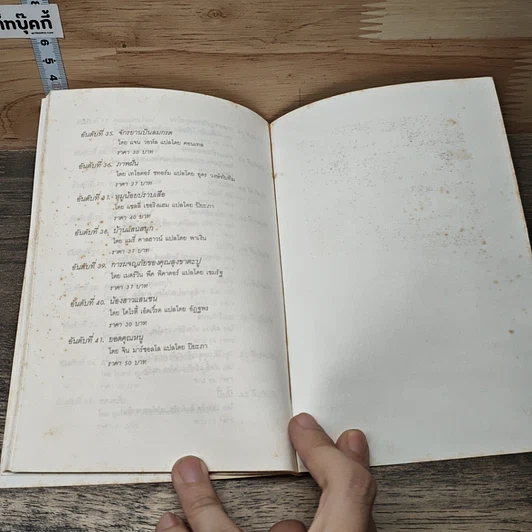 ก๊ทบุ๊คกี้
6 5 4
อันดับที่ 35. จักรยานปีนลมกรด
โดย แจน วอห์ล แปลโดย ดอนเทล
ราคา 30 บาท
อันดับที่ 36. ภาพฝัน
โดย เทโอดอร์ ชทอร์ม แปลโดย อุดร วงษ์ทับทิม
ราคา 27 บาท
อันดับที่ 37. หมูน้อยปราบเสือ
โดย แชลลี เชอริงแฮม แปลโดย ปิยะภา
ราคา 40 บาท
อันดับที่ 38. บ้านแสนสนุก
โดย แมรี่ คาลฮาวน์ แปลโดย พาเงิน
ราคา 37 บาท
อันดับที่ 39. การผจญภัยของคุณลุงขาตะปู
โดย เมอร์วิน พีค พิคาดอร์ แปลโดย เขมรัฐ
ราคา 37 บาท
อันดับที่ 40. น้องสาวแสนซน
โดย โดโรธี เอ็ดเวิร์ด แปลโดย อัฏฐพร
ราคา 30 บาท
อันดับที่ 41. ยอดคุณหนู
โดย จีน มาร์ซอลโล แปลโดย ปิยะภา
ราคา 50 บาท